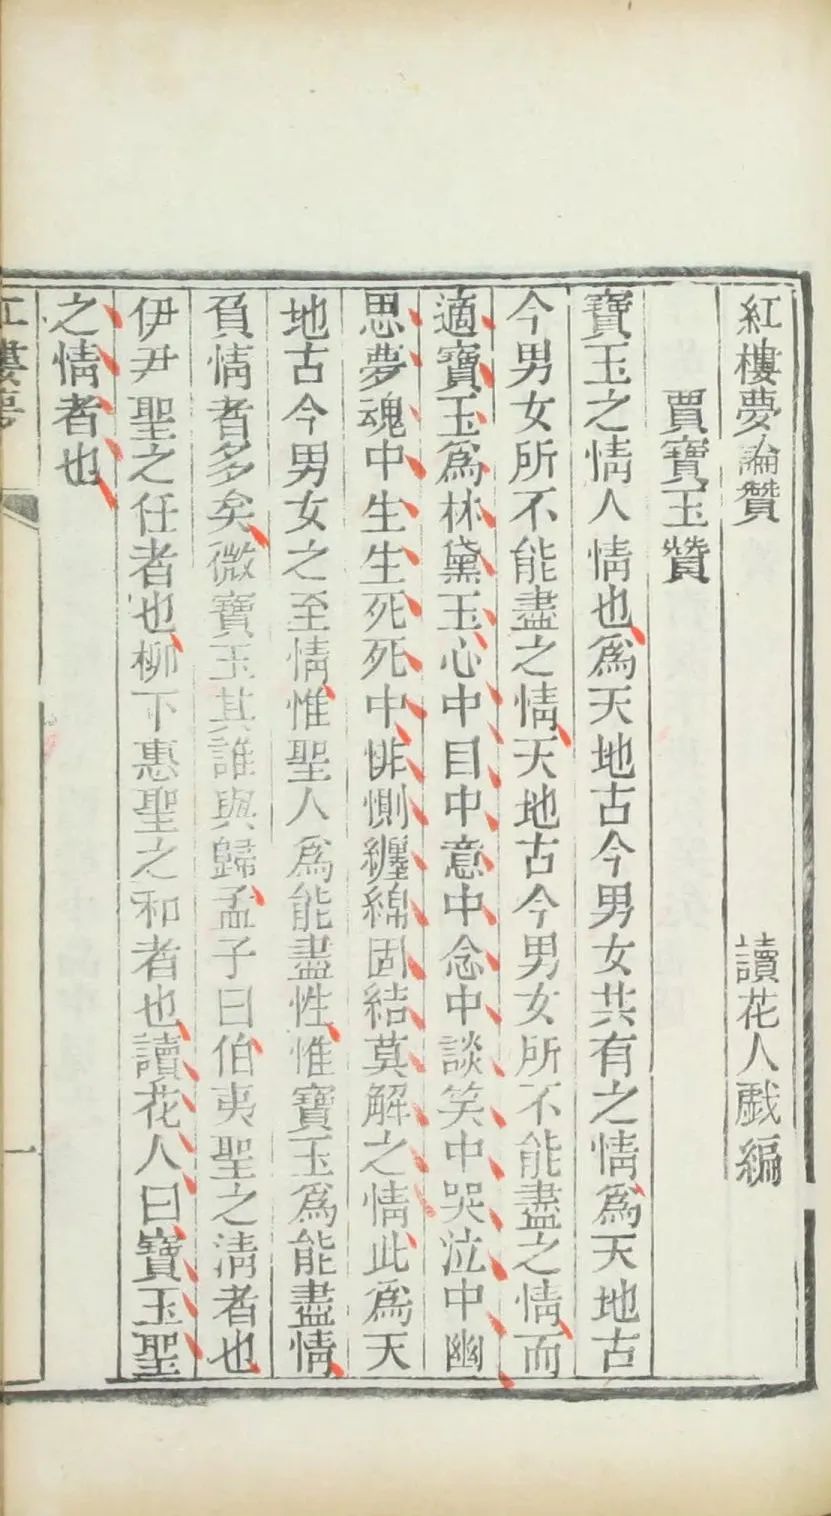 紅樓夢論贊 讀花人戲編
賈寶玉贊
寶玉之情人情也爲天地古今男女共有之情爲天地古
今男女所不能盡之情天地古今男女所不能盡之情而
適寶玉爲林黛玉心中目中意中念中談笑中哭泣中幽
思夢魂中生生死死中悱惻纏綿固結莫解之情此爲天
地古今男女之至情惟聖人爲能盡性惟寶玉爲能盡情
負情者多矣微寶玉其誰與歸孟子曰伯夷聖之清者也
伊尹聖之任者也柳下惠聖之和者也讀花人曰寶玉聖
之情者也
紅樓夢 一